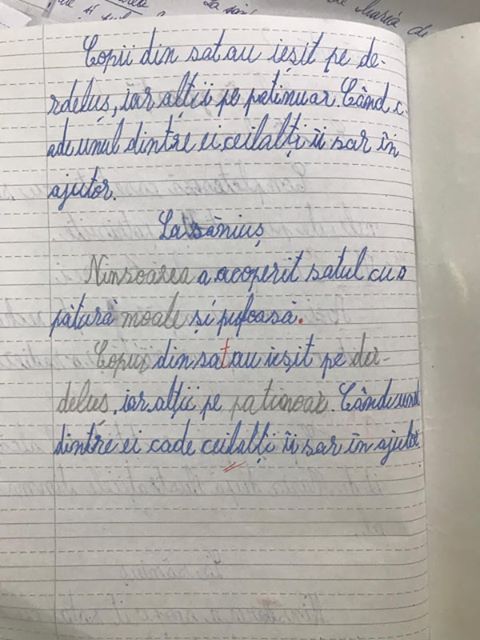 Copii din sat au ieșit pe de-
rdeluș, iar alții pe patinuar. Când c
ade unul dintre ei ceilalți îi sar în
ajutor.
La săniuș
Ninsoarea a acoperit satul cu o
pătură moale și pufoasă.
Copiii din sat au ieșit pe der-
deluș, iar alții pe patinoar. Când unul
dintre ei cade ceilalți îi sar în ajutor